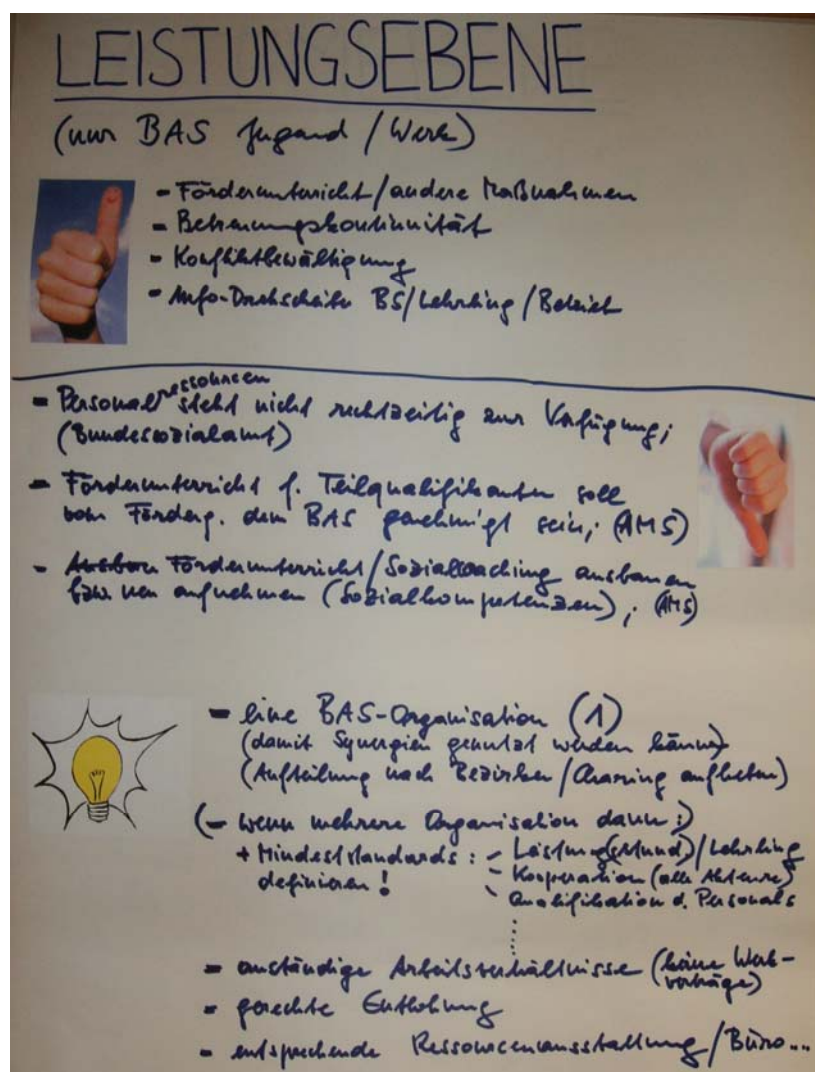 LEISTUNGSEBENE
(nur BAS Jugend / Werk)
- Förderunterricht/andere Maßnahmen
- Betreuungskontinuität
- Konfliktbewältigung
- Info-Drehscheibe BS/Lehrling/Betrieb
- Personalressourcen steht nicht rechtzeitig zur Verfügung;
(Bundessozialamt)
- Förderunterricht f. Teilqualifikanten soll
vom Förderg. dem BAS genehmigt sein; (AMS)
- Ausbau Förderunterricht/Sozialcoaching ausbauen
bzw. neu aufnehmen (Sozialkompetenzen); (AMS)
- eine BAS-Organisation (1)
(damit Synergien genutzt werden können)
(Aufteilung nach Bezirken / Clearing aufheben)
(- wenn mehrere Organisation dann:)
+ Mindeststandards: - Leistung(stund)/Lehrling
definieren! - Kooperation (alle Akteure)
- Qualifikation d. Personals
- anständige Arbeitsverhältnisse (keine Werk-
verträge)
- gerechte Entlohnung
- entsprechende Ressourcenausstattung/Büro...